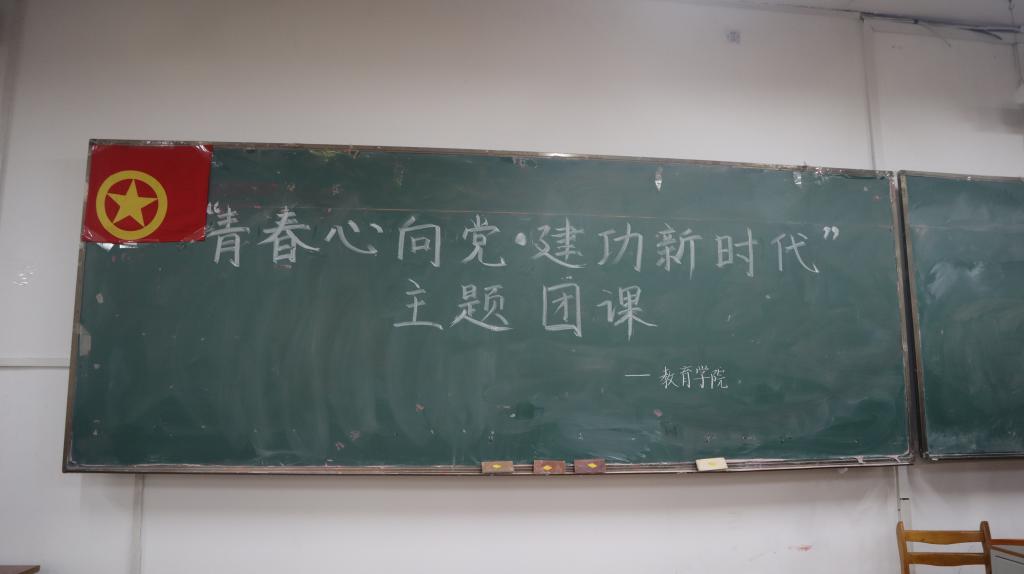 “青春心向党·建功新时代”
主题团课
— 教育学院